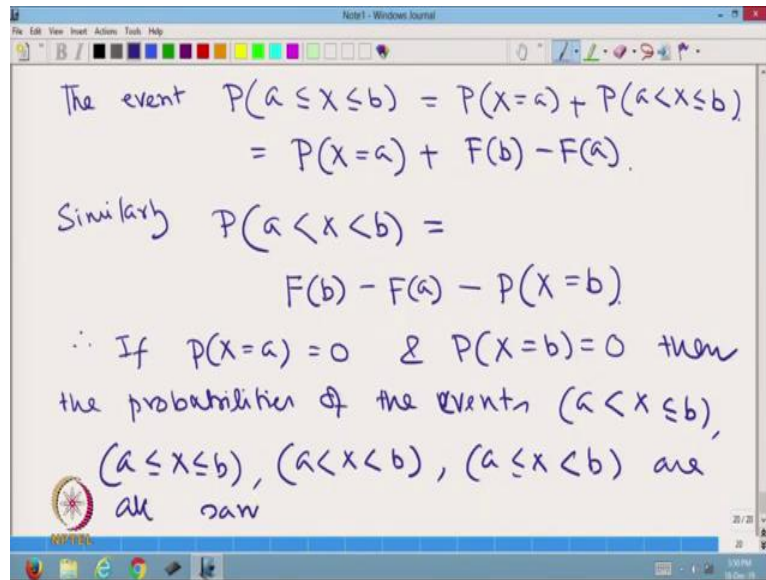 Note1 - Windows Journal
File Edit View Insert Actions Tools Help
The event P(a ≤ X ≤ b) = P(X=a) + P(a<X≤b)
= P(X=a) + F(b) - F(a).
Similarly P(a < X < b) =
F(b) - F(a) - P(X=b)
∴ If P(X=a) = 0 & P(X=b)=0 then
the probabilities of the events (a < X ≤ b),
(a ≤ X ≤ b), (a<X<b), (a ≤ X < b) are
all sam
NPTEL
20/20
20